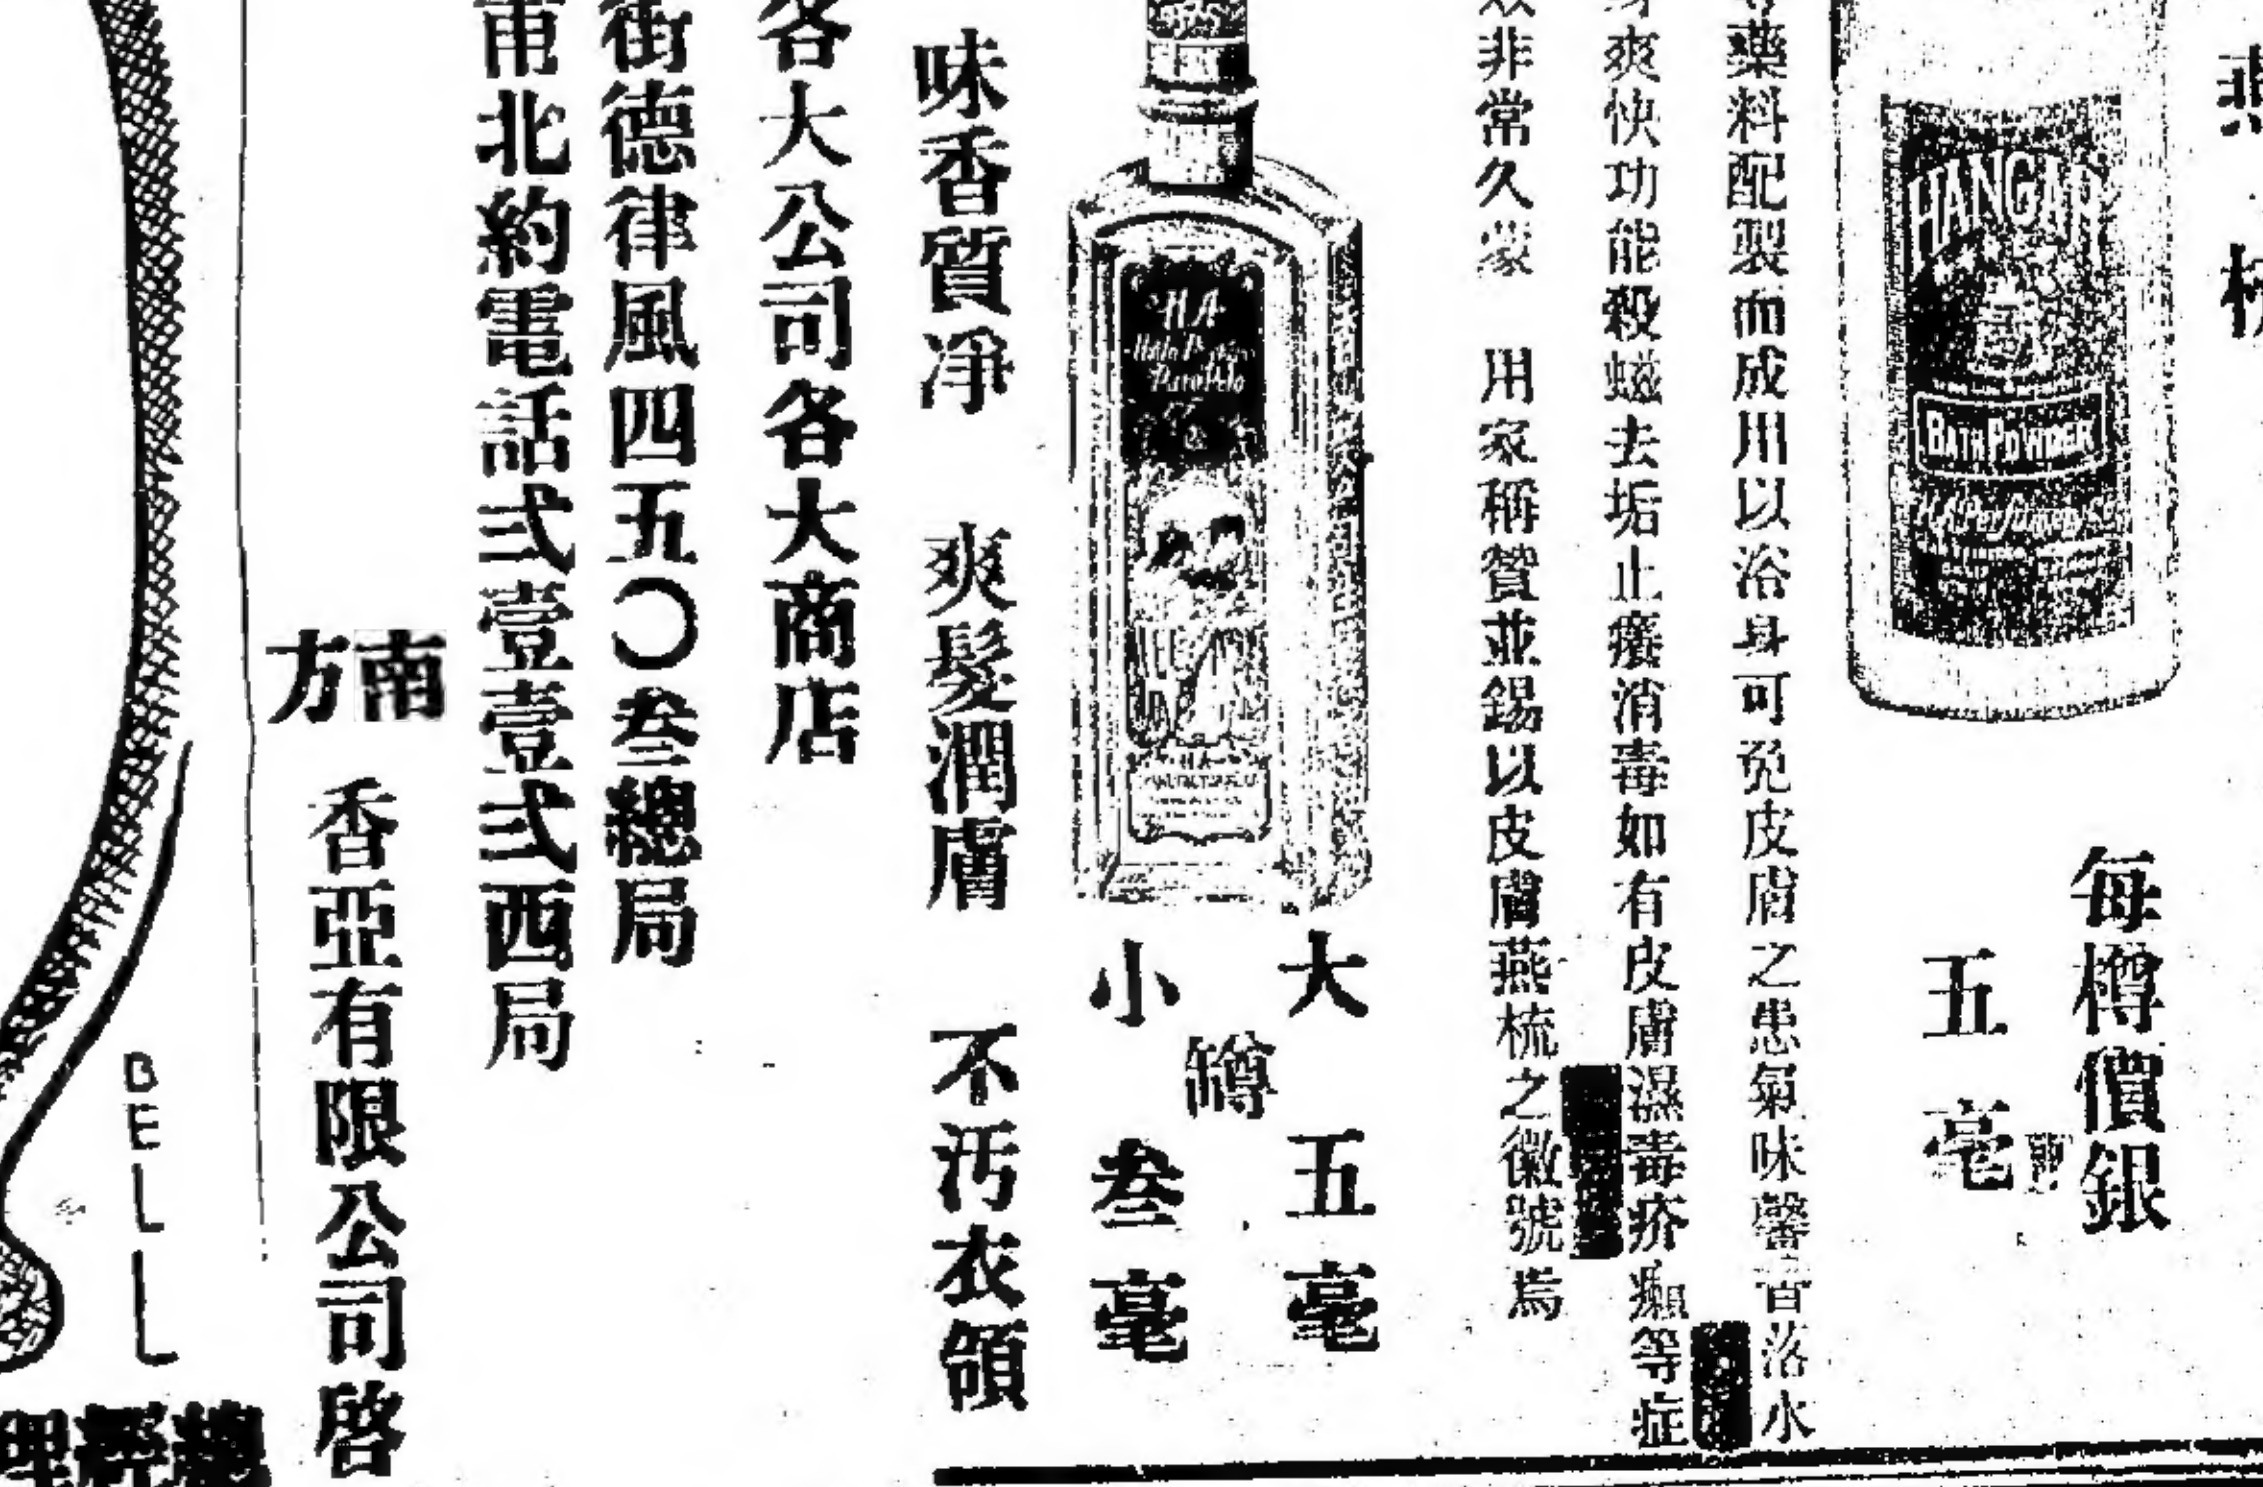 燕
HANGAH
BATH POWDER
每樽價銀
五毫
藥料配製而成用以浴身可免皮膚之患氣味馨香落水
爽快功能殺蟲去垢止癢消毒如有皮膚濕毒疥癩等症
非常久蒙 用家稱贊並錫以皮膚燕梳之徽號焉
HA
大 五毫
樽
小 叁毫
味香質凈 爽髮潤膚 不汚衣領
各大公司各大商店
街德律風四五〇叁總局
甫北約電話弍壹壹弍西局
南方
香亞有限公司啓
BELL
總經理